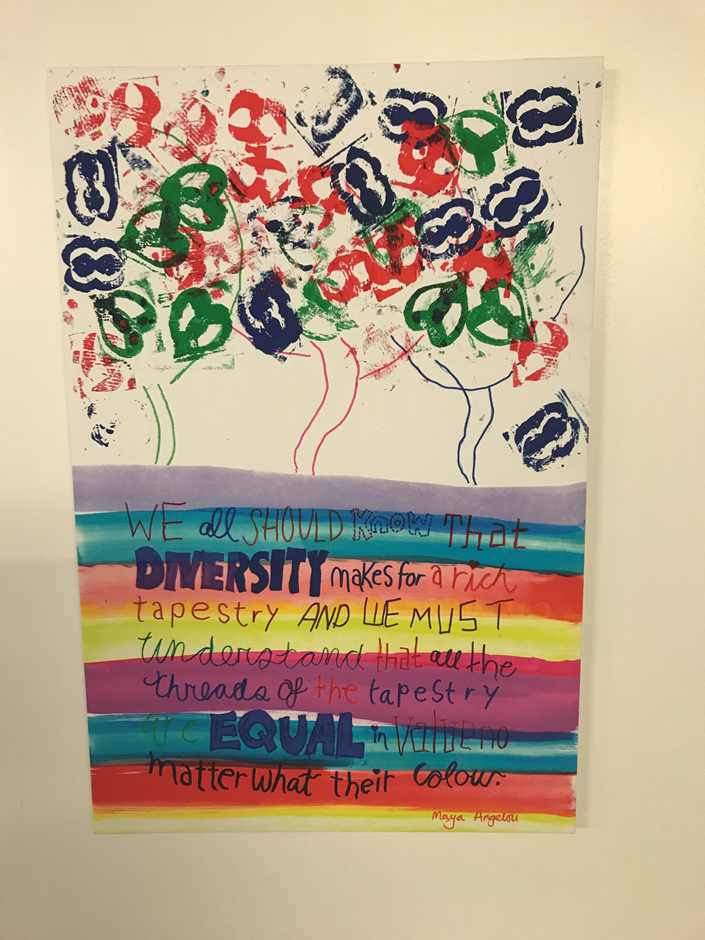 WE all SHOULD KNOW That
DIVERSITY makes for a rich
tapestry AND WE MUST
understand that all the
threads of the tapestry
are EQUAL in Value no
matter what their colour.
Maya Angelou